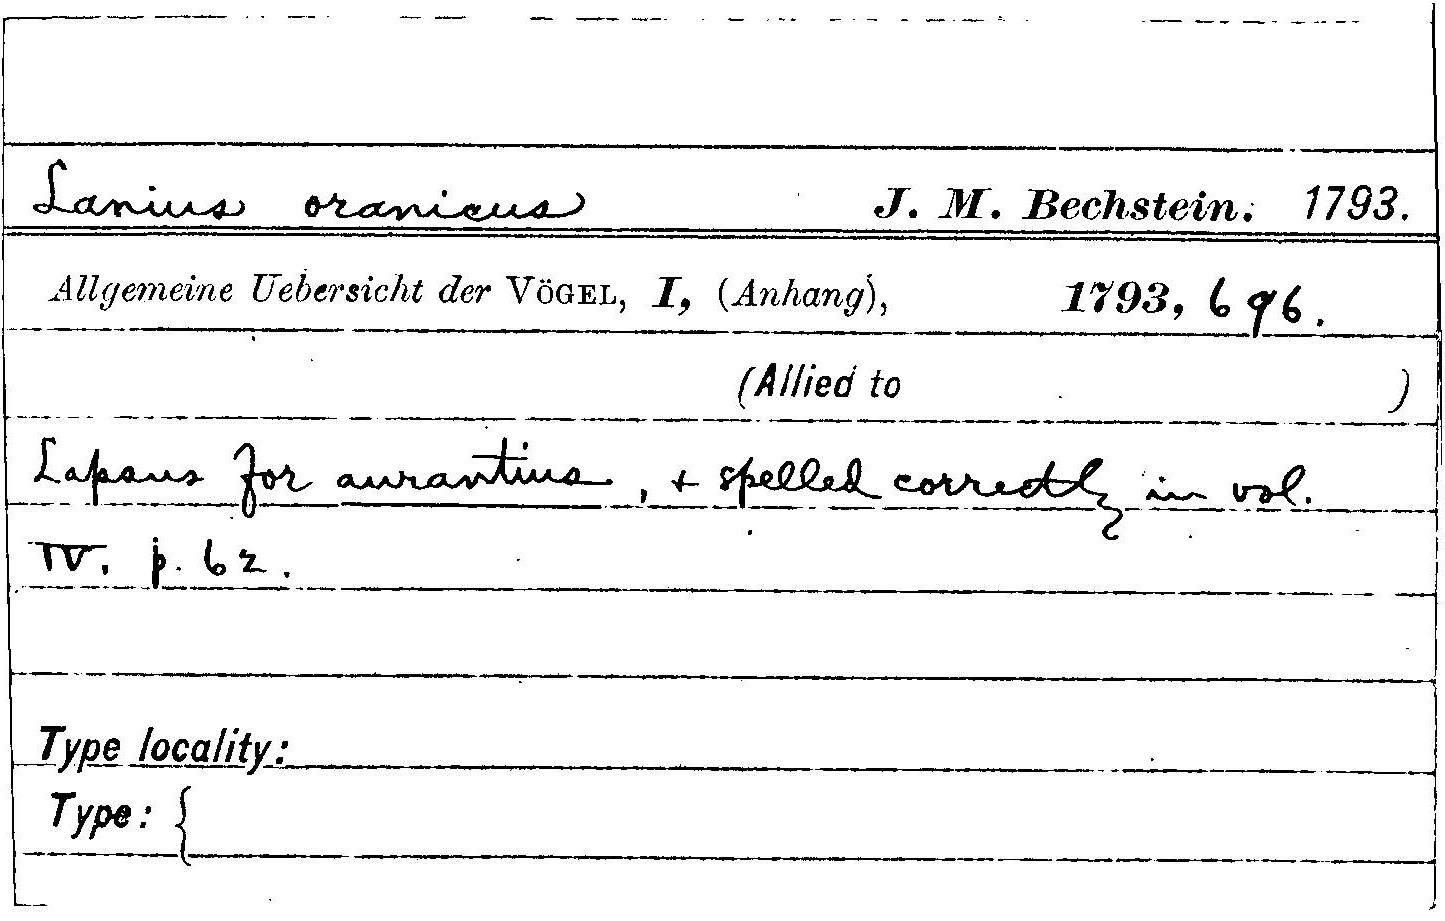 Lanius oranicus J. M. Bechstein. 1793.
Allgemeine Uebersicht der VÖGEL, I, (Anhang), 1793, 696.
(Allied to )
Lapsus for aurantius, + spelled correctly in vol.
IV. p. 62.
Type locality:
Type: {